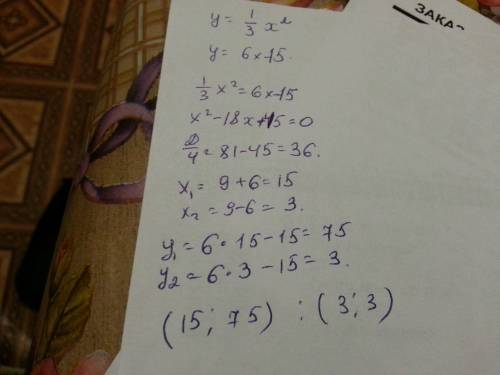 ЗАКАЗ
y = 1/3 x²
y = 6x-15.
1/3 x² = 6x-15
x² - 18x + 45 = 0
D/4 = 81 - 45 = 36.
x₁ = 9 + 6 = 15
x₂ = 9 - 6 = 3.
y₁ = 6 · 15 - 15 = 75
y₂ = 6 · 3 - 15 = 3.
(15; 75) ; (3; 3)